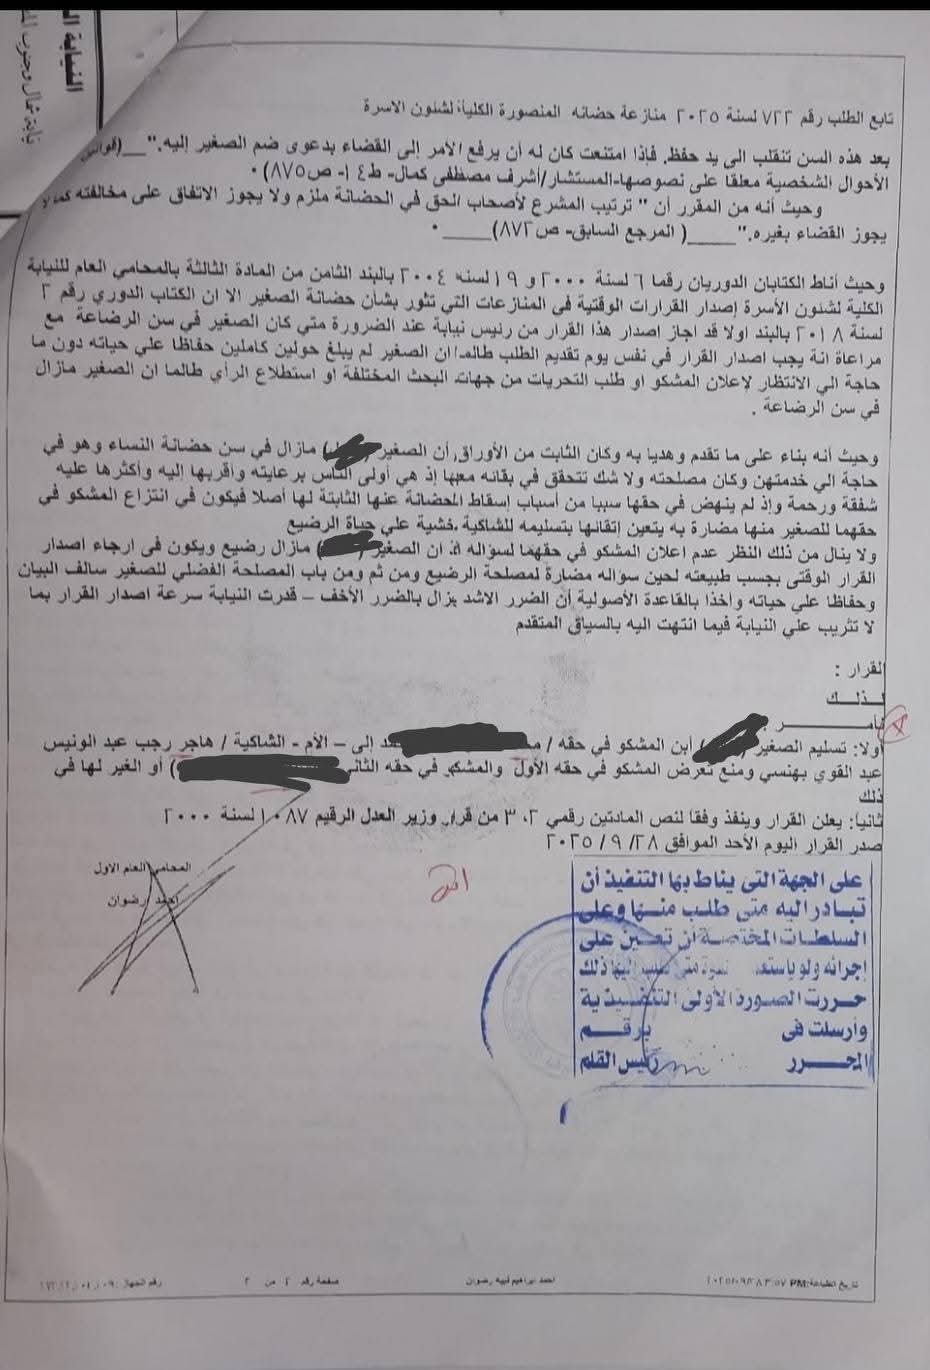 النيابة
نيابة شمال وجنوب
تابع الطلب رقم ٧٢٢ لسنة ٢٠٢٥ منازعة حضانه المنصورة الكلية لشئون الاسرة
بعد هذه السن تنقلب الى يد حفظ. فإذا امتنعت كان له أن يرفع الأمر إلى القضاء بدعوى ضم الصغير إليه." __(قوانين
الأحوال الشخصية معلقا على نصوصها-المستشار/أشرف مصطفى كمال- ط٤ ١- ص٨٧٥)٠
وحيث أنه من المقرر أن " ترتيب المشرع لأصحاب الحق في الحضانة ملزم ولا يجوز الاتفاق على مخالفته كما لا
يجوز القضاء بغيره." ____( المرجع السابق- ص٨٧٢)____٠
وحيث أناط الكتابان الدوريان رقما ٦ لسنة ٢٠٠٠ و ١٩ لسنه ٢٠٠٤ بالبند الثامن من المادة الثالثة بالمحامي العام للنيابة
الكلية لشئون الأسرة إصدار القرارات الوقتية في المنازعات التي تثور بشأن حضانة الصغير الا ان الكتاب الدوري رقم ٢
لسنة ٢٠١٨ بالبند اولا قد اجاز اصدار هذا القرار من رئيس نيابة عند الضرورة متي كان الصغير في سن الرضاعة مع
مراعاة انة يجب اصدار القرار في نفس يوم تقديم الطلب طالما ان الصغير لم يبلغ حولين كاملين حفاظا علي حياته دون ما
حاجة الي الانتظار لإعلان المشكو او طلب التحريات من جهات البحث المختلفة او استطلاع الرأي طالما ان الصغير مازال
في سن الرضاعة .
وحيث أنه بناء على ما تقدم وهديا به وكان الثابت من الأوراق أن الصغير ( ) مازال في سن حضانة النساء وهو في
حاجة الي خدمتهن وكان مصلحته ولا شك تتحقق في بقائه معها إذ هي أولى الناس برعايته وأقربها إليه وأكثرها عليه
شفقة ورحمة وإذ لم ينهض في حقها سببا من أسباب إسقاط الحضانة عنها الثابتة لها أصلا فيكون في انتزاع المشكو في
حقهما للصغير منها مضارة به يتعين إتقانها بتسليمه للشاكية خشية علي حياة الرضيع
ولا ينال من ذلك النظر عدم اعلان المشكو في حقهما لسؤاله اذ ان الصغير ( ) مازال رضيع ويكون فى ارجاء اصدار
القرار الوقتى بجسب طبيعته لحين سؤاله مضارة لمصلحة الرضيع ومن ثم ومن باب المصلحة الفضلي للصغير سالف البيان
وحفاظا علي حياته وأخذا بالقاعدة الأصولية أن الضرر الاشد يزال بالضرر الأخف – قدرت النيابة سرعة اصدار القرار بما
لا تثريب علي النيابة فيما انتهت اليه بالسياق المتقدم
القرار :
لـذلـك
نأمـــــر
أولا: تسليم الصغير ( ) أبن المشكو في حقه / إلى – الأم - الشاكية / هاجر رجب عبد الونيس
عبد القوي بهنسي ومنع تعرض المشكو في حقه الأول والمشكو في حقه الثاني ) أو الغير لها في
ذلك
ثانيا: يعلن القرار وينفذ وفقا لنص المادتين رقمي ٢، ٣ من قرار وزير العدل الرقيم ١٠٨٧ لسنة ٢٠٠٠
صدر القرار اليوم الأحد الموافق ٢٨/ ٩/ ٢٠٢٥
المحامي العام الاول
احمد رضوان
على الجهة التى يناط بها التنفيذ أن
تبادر اليه متى طلب منها وعلى
السلطات المختصة ان تعين على
إجرائه ولو باستعمال القوة متى طلب اليها ذلك
حررت الصورة الأولى التنفيذية
وأرسلت فى برقم
المحرر رئيس القلم
تاريخ الطباعة: PM
احمد ابراهيم لبيه رضوان
صفحة رقم ٢ من ٢
رقم الجهاز